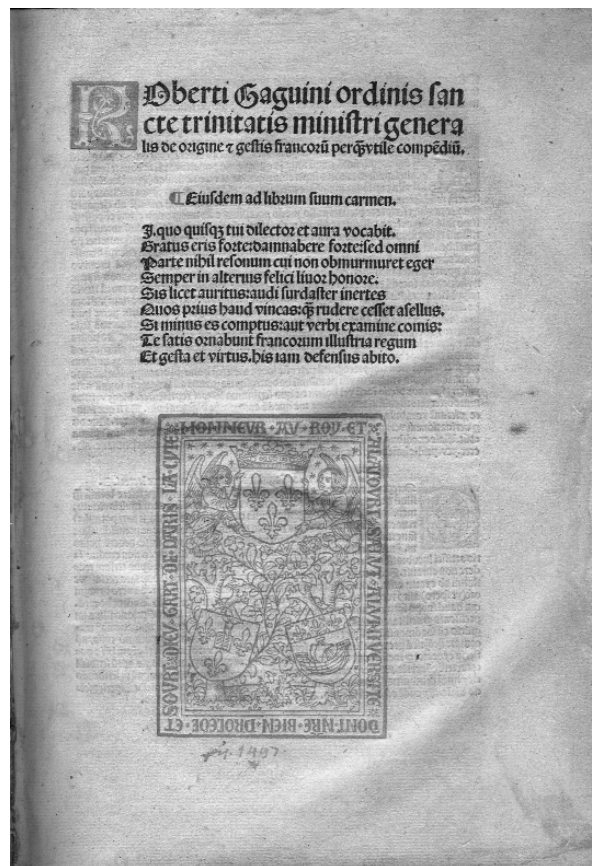 ROberti Gaguini ordinis san
cte trinitatis ministri genera
lis de origine ⁊ gestis francorū perq̃vtile compēdiū.
¶ Eiusdem ad librum suum carmen.
I. quo quisqꝫ tui dilector et aura vocabit.
Gratus eris forte: damnabere forte: sed omni
Parte nihil resonum cui non obmurmuret eger
Semper in alterius felici liuor honore.
Sis licet auritus: audi surdaster inertes
Quos prius haud vincas: q̃ rudere cesset asellus.
Si minus es comptus: aut verbi examine comis:
Te satis ornabunt francorum illustria regum
Et gesta et virtus. his iam defensus abito.
HONNEUR · AU · ROY · ET
A · LA · COURT · SALUT · A · LUNIVERSITE
DONT · NRE · BIEN · PROCEDE · ET
SOURT · DIEU · GART · DE · PARIS · LA · CITE
1497.